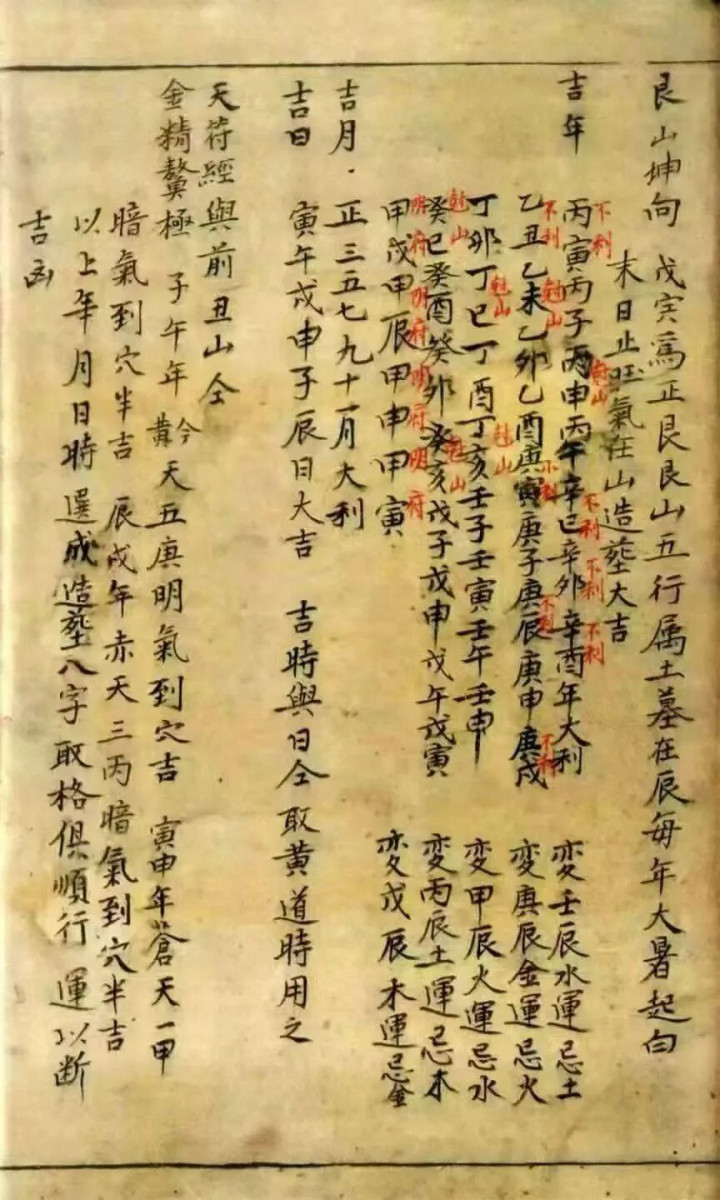 艮山坤向 戊寅爲正艮艮山五行属土墓在辰每年大暑起白
末日止旺氣在山造塟大吉
吉年 丙寅丙子丙申丙午辛巳辛卯辛酉年大利 变壬辰水運忌土
不利 兙山 兙山 不利 不利 不利
乙丑乙未乙卯乙酉庚寅庚子庚辰庚申庚戌 变庚辰金運忌火
不利 兙山 兙山 不利 不利 不利
丁卯丁巳丁酉丁亥壬子壬寅壬午壬申 变甲辰火運忌水
兙山 兙山
癸巳癸酉癸卯癸亥戊子戊申戊午戊寅 変丙辰土運忌木
明府 明府 明府 明府
甲戌甲辰甲申甲寅 变戊辰木運忌金
吉月．正三五七九十一月大利
吉日 寅午戌申子辰日大吉 吉時與日仝取黄道時用之
天符經與前丑山仝
金精鰲極 子午年 黅天五庚明氣到穴吉 寅申年蒼天一甲
暗氣到穴半吉 辰戌年赤天三丙暗氣到穴半吉
以上年月日時選成造塟八字取格俱順行運以断
吉凶